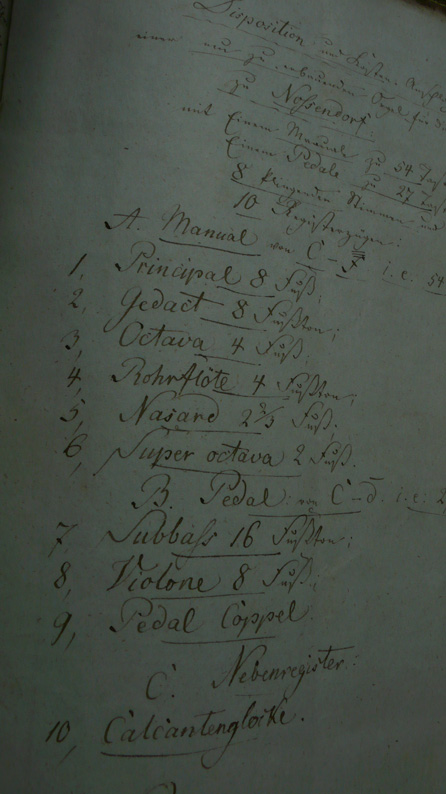 Disposition und Kosten Anschl
einer neu zu erbauenden Orgel für d
zu Nossendorf.
mit Einem Manuale zu 54 Tas
Einem Pedale zu 27 tas
8 klingenden Stimmen und
10 Registerzügen:
A. Manual von C – f i. e. 54
1, Principal 8 Fuß;
2, Gedact 8 Fußton;
3, Octava 4 Fuß;
4, Rohrflöte 4 Fußton;
5, Nasard 2 2/3 Fuß.
6, Super octava 2 Fuß.
B. Pedal: von C – d. i. e: 2
7, Subbass 16 Fußton;
8, Violone 8 Fuß;
9, Pedal Coppel.
C. Nebenregister:
10, Calcantenglocke.